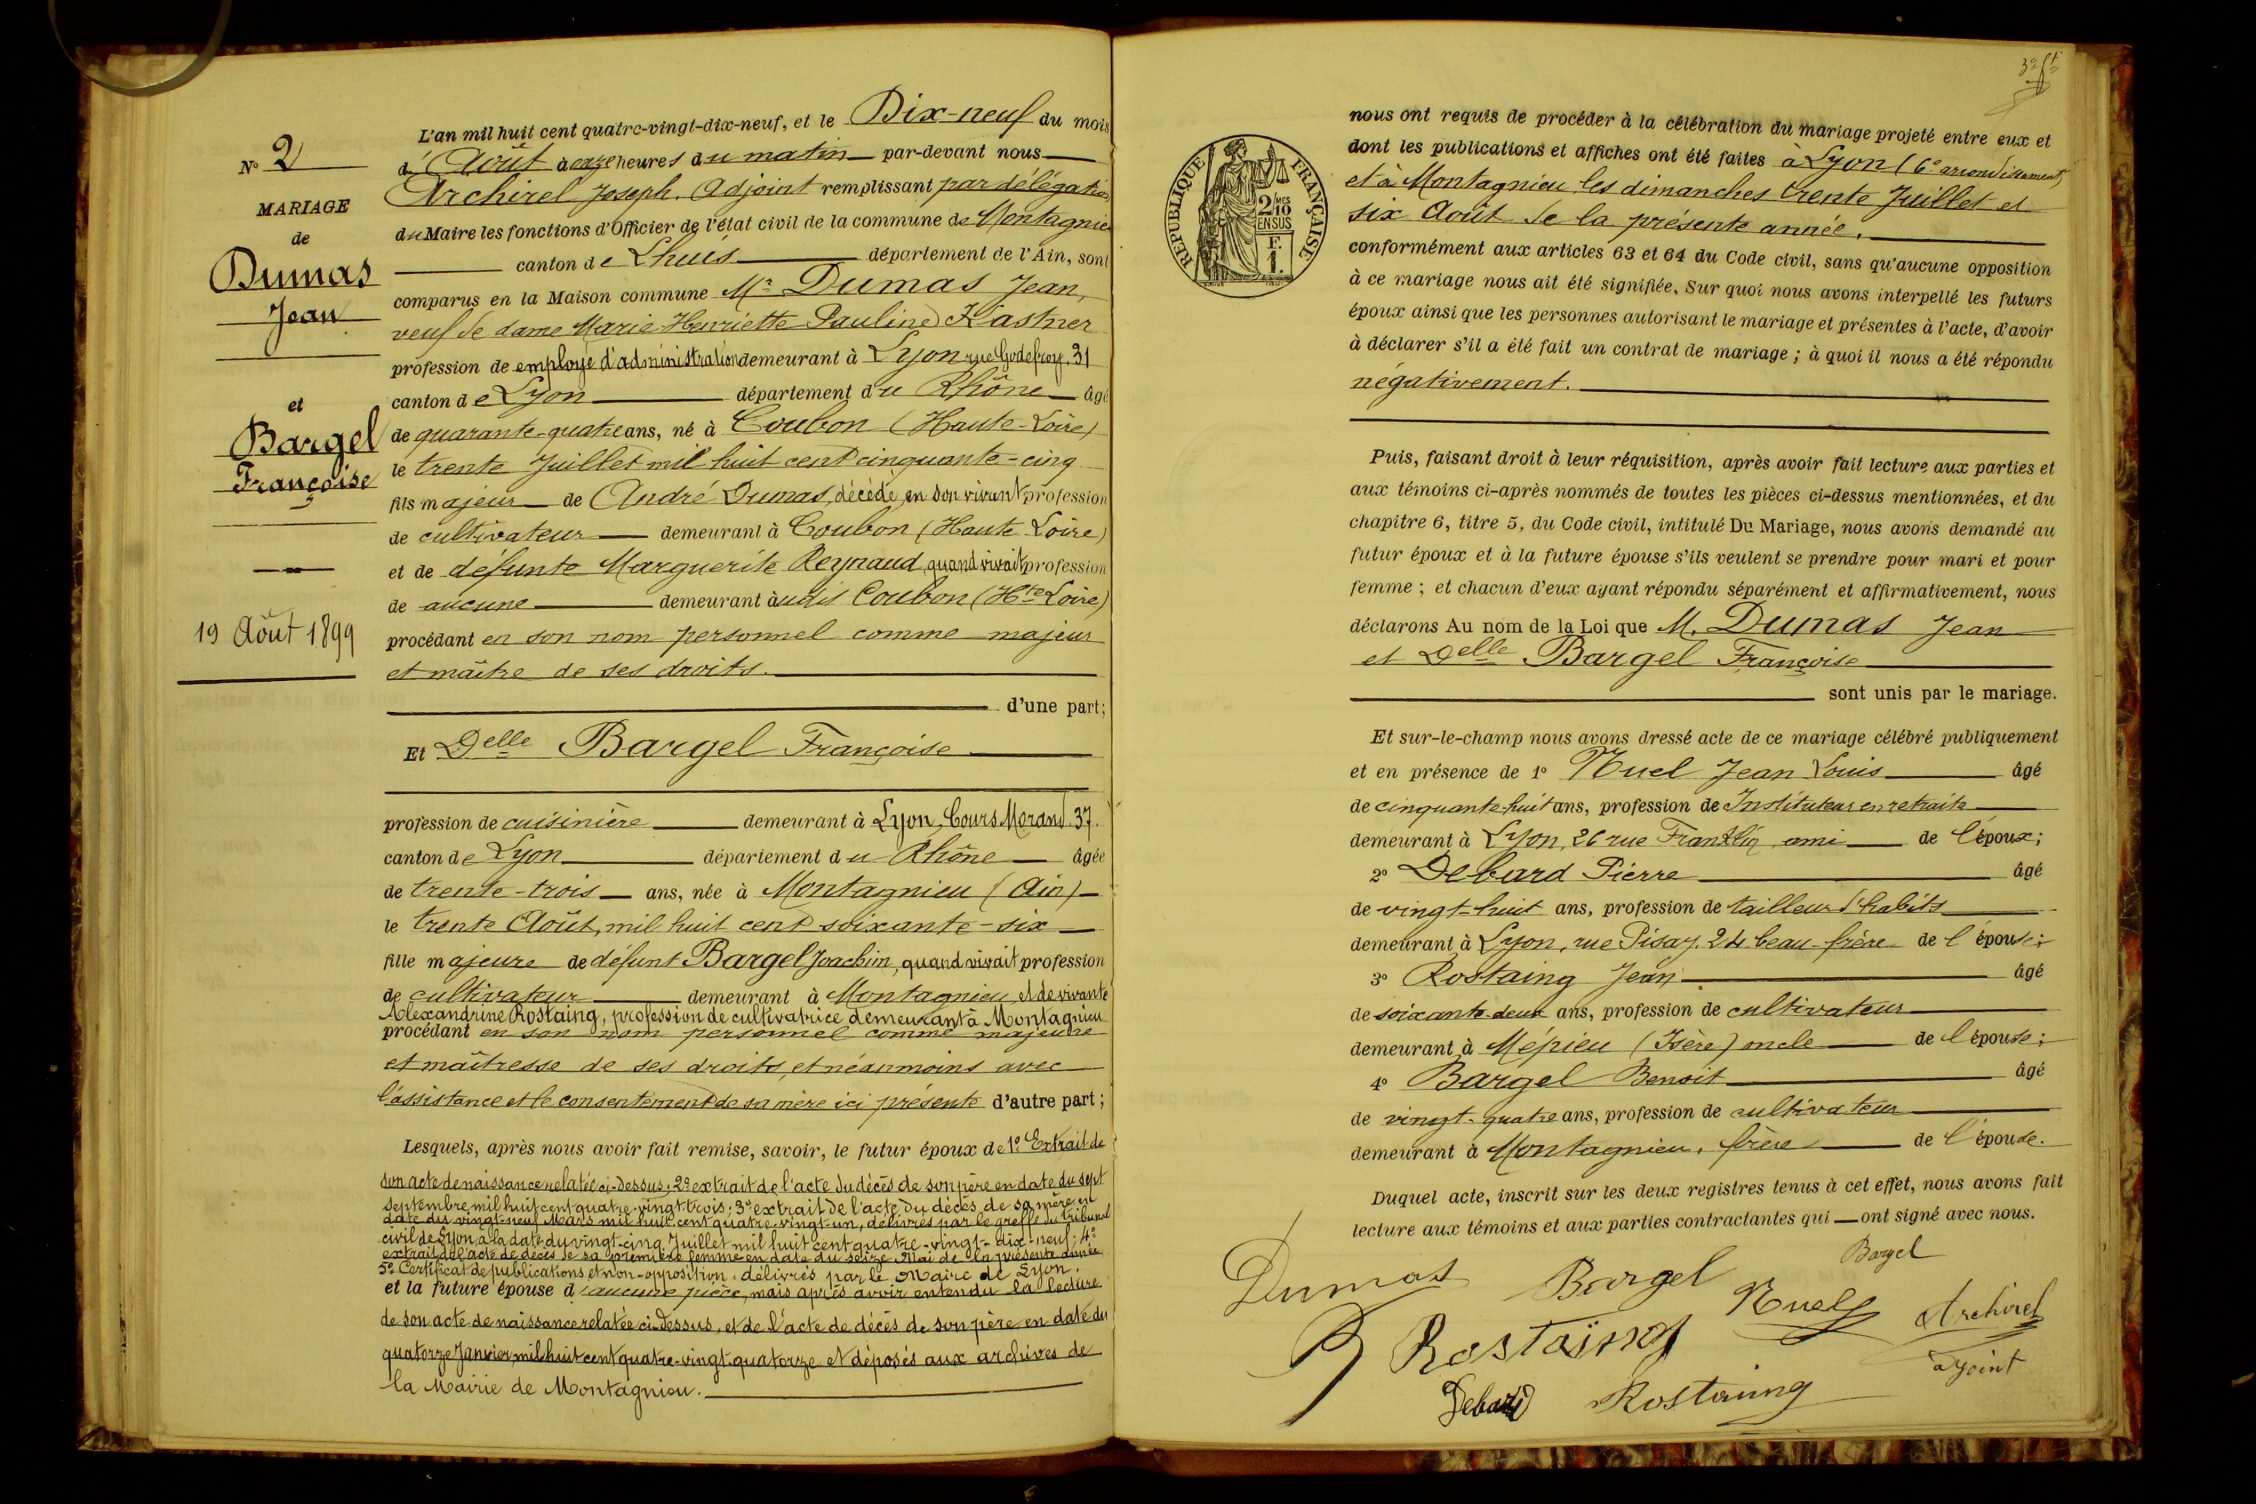 N° 2
MARIAGE
de
Dumas
Jean
et
Bargel
Françoise
19 Août 1899
L'an mil huit cent quatre-vingt-dix-neuf, et le Dix-neuf du mois
d'Août à onze heures du matin par-devant nous
Archirel Joseph, Adjoint remplissant par délégation
du Maire les fonctions d'Officier de l'état civil de la commune de Montagnieu
canton de Lhuis département de l'Ain, sont
comparus en la Maison commune Mr Dumas Jean,
veuf de dame Marie Henriette Pauline Kastner
profession de employé d'administration demeurant à Lyon rue Godefroy, 31
canton de Lyon département du Rhône âgé
de quarante-quatre ans, né à Coubon (Haute-Loire)
le trente Juillet mil huit cent cinquante-cinq
fils majeur de André Dumas, décédé, en son vivant profession
de cultivateur demeurant à Coubon (Haute-Loire)
et de défunte Marguerite Reynaud, quand vivait profession
de aucune demeurant audit Coubon (Hte Loire)
procédant en son nom personnel comme majeur
et maître de ses droits.
d'une part;
Et Delle Bargel Françoise
profession de cuisinière demeurant à Lyon, Cours Morand. 37.
canton de Lyon département du Rhône âgée
de trente-trois ans, née à Montagnieu (Ain)
le trente Août, mil huit cent soixante-six
fille majeure de défunt Bargel Joachim, quand vivait profession
de cultivateur demeurant à Montagnieu et de vivante
Alexandrine Rostaing, profession de cultivatrice demeurant à Montagnieu
procédant en son nom personnel comme majeure
et maîtresse de ses droits, et néanmoins avec
l'assistance et le consentement de sa mère ici présente d'autre part;
Lesquels, après nous avoir fait remise, savoir, le futur époux de 1° Extrait de
son acte de naissance relatée ci-dessus; 2° extrait de l'acte du décès de son père en date du sept
septembre mil huit cent quatre-vingt-trois; 3° extrait de l'acte du décès de sa mère en
date du vingt-neuf Mars mil huit cent quatre-vingt-un, délivrés par le greffe du tribunal
civil de Lyon à la date du vingt-cinq Juillet mil huit cent quatre-vingt-dix-neuf; 4°
extrait de l'acte de décès de sa première femme en date du seize Mai de la présente année
5° Certificat de publications et non-opposition, délivrés par le Maire de Lyon.
et la future épouse d'aucune pièce, mais après avoir entendu la lecture
de son acte de naissance relatée ci-dessus, et de l'acte de décès de son père en date du
quatorze Janvier mil huit cent quatre-vingt-quatorze et déposés aux archives de
la Mairie de Montagnieu.
RÉPUBLIQUE FRANÇAISE
2/10 MES
EN SUS
F.
1.
nous ont requis de procéder à la célébration du mariage projeté entre eux et
dont les publications et affiches ont été faites à Lyon (6e arrondissement)
et à Montagnieu les dimanches trente Juillet et
six Août de la présente année.
conformément aux articles 63 et 64 du Code civil, sans qu'aucune opposition
à ce mariage nous ait été signifiée. Sur quoi nous avons interpellé les futurs
époux ainsi que les personnes autorisant le mariage et présentes à l'acte, d'avoir
à déclarer s'il a été fait un contrat de mariage; à quoi il nous a été répondu
négativement.
Puis, faisant droit à leur réquisition, après avoir fait lecture aux parties et
aux témoins ci-après nommés de toutes les pièces ci-dessus mentionnées, et du
chapitre 6, titre 5, du Code civil, intitulé Du Mariage, nous avons demandé au
futur époux et à la future épouse s'ils veulent se prendre pour mari et pour
femme; et chacun d'eux ayant répondu séparément et affirmativement, nous
déclarons Au nom de la Loi que M. Dumas Jean
et Delle Bargel Françoise
sont unis par le mariage.
Et sur-le-champ nous avons dressé acte de ce mariage célébré publiquement
et en présence de 1° Nuel Jean Louis âgé
de cinquante-huit ans, profession de Instituteur en retraite
demeurant à Lyon, 26 rue Franklin ami de l'époux;
2° Debard Pierre âgé
de vingt-huit ans, profession de tailleur d'habits
demeurant à Lyon, rue Pisay. 24 beau-frère de l'épouse;
3° Rostaing Jean âgé
de soixante-deux ans, profession de cultivateur
demeurant à Mépieu (Isère) oncle de l'épouse;
4° Bargel Benoit âgé
de vingt-quatre ans, profession de cultivateur
demeurant à Montagnieu, frère de l'épouse.
Duquel acte, inscrit sur les deux registres tenus à cet effet, nous avons fait
lecture aux témoins et aux parties contractantes qui ont signé avec nous.
Bargel
Dumas Bargel Nuel Archirel
Rostaing adjoint
Debard Rostaing